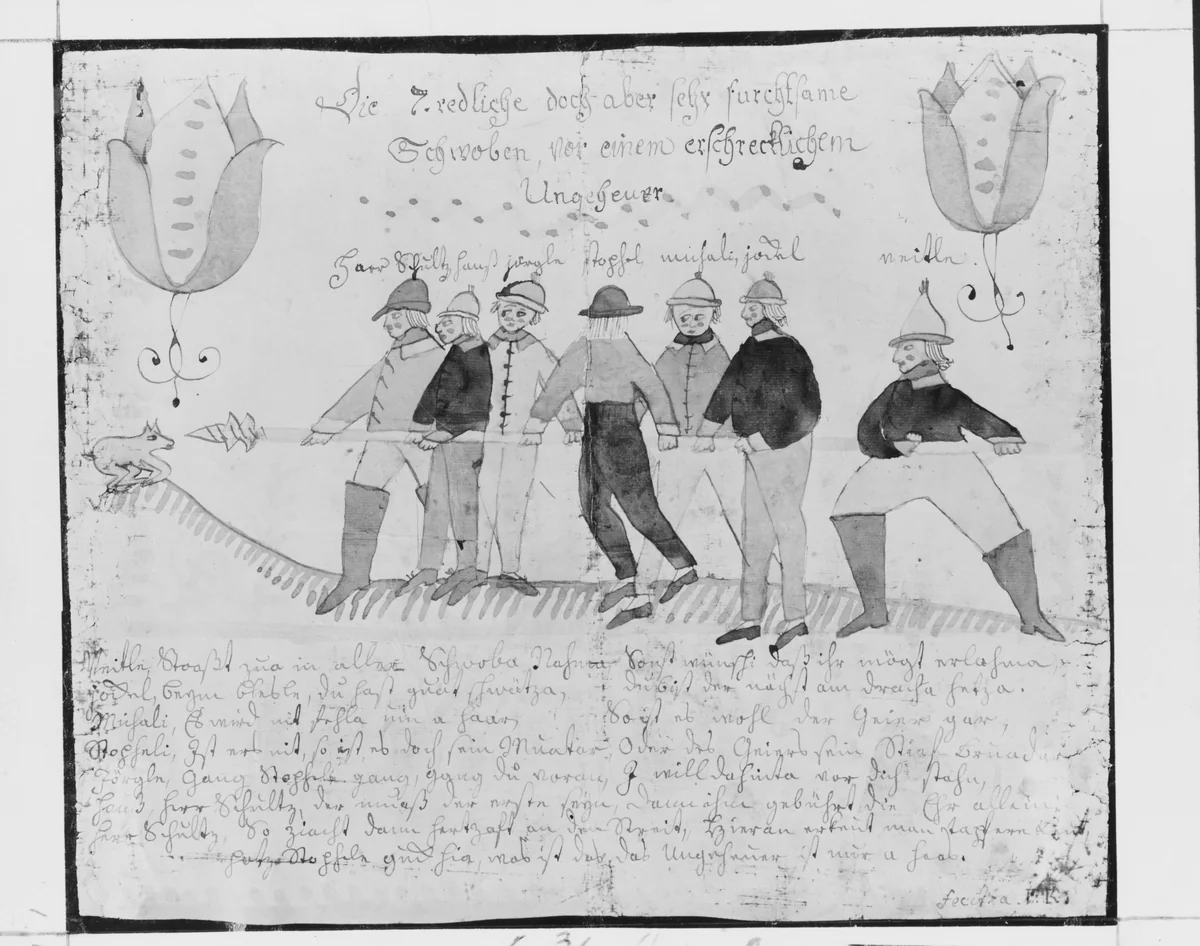 Die 7. redliche doch aber sehr furchtsame
Schwoben, vor einem erschrecklichem
Ungeheuer
Herr Schultz hanß jörgle stophel michali, jockel veitle.
Veitle, Stooßt zua in aller Schwoba Nahma Sonst wünsch i daß ihr mögt erlahma,
jockel, beym blesle, du hast guat schwätza, du bist der nächst am dracha hetza.
Michali, Es wird nit fehla um a haar, So ist es wohl der Geier gar,
Stopheli, Ist ers nit, so ist es doch sein Muatar, Oder des Geiers sein Stiaf bruadar
Jörgle, Gang Stophele gang, gang du voran, I will dahinta vor dich stahn,
hanß, herr Schultz der muaß der erste seyn, Dann ihm gebührt die Ehr allein
herr Schultz, So ziacht dann hertzaft an den Streit, Hieran erkent man tapfere
potz Stophele guck hia, was ist das, das Ungeheuer ist nur a haas.
fecit a. F. K.